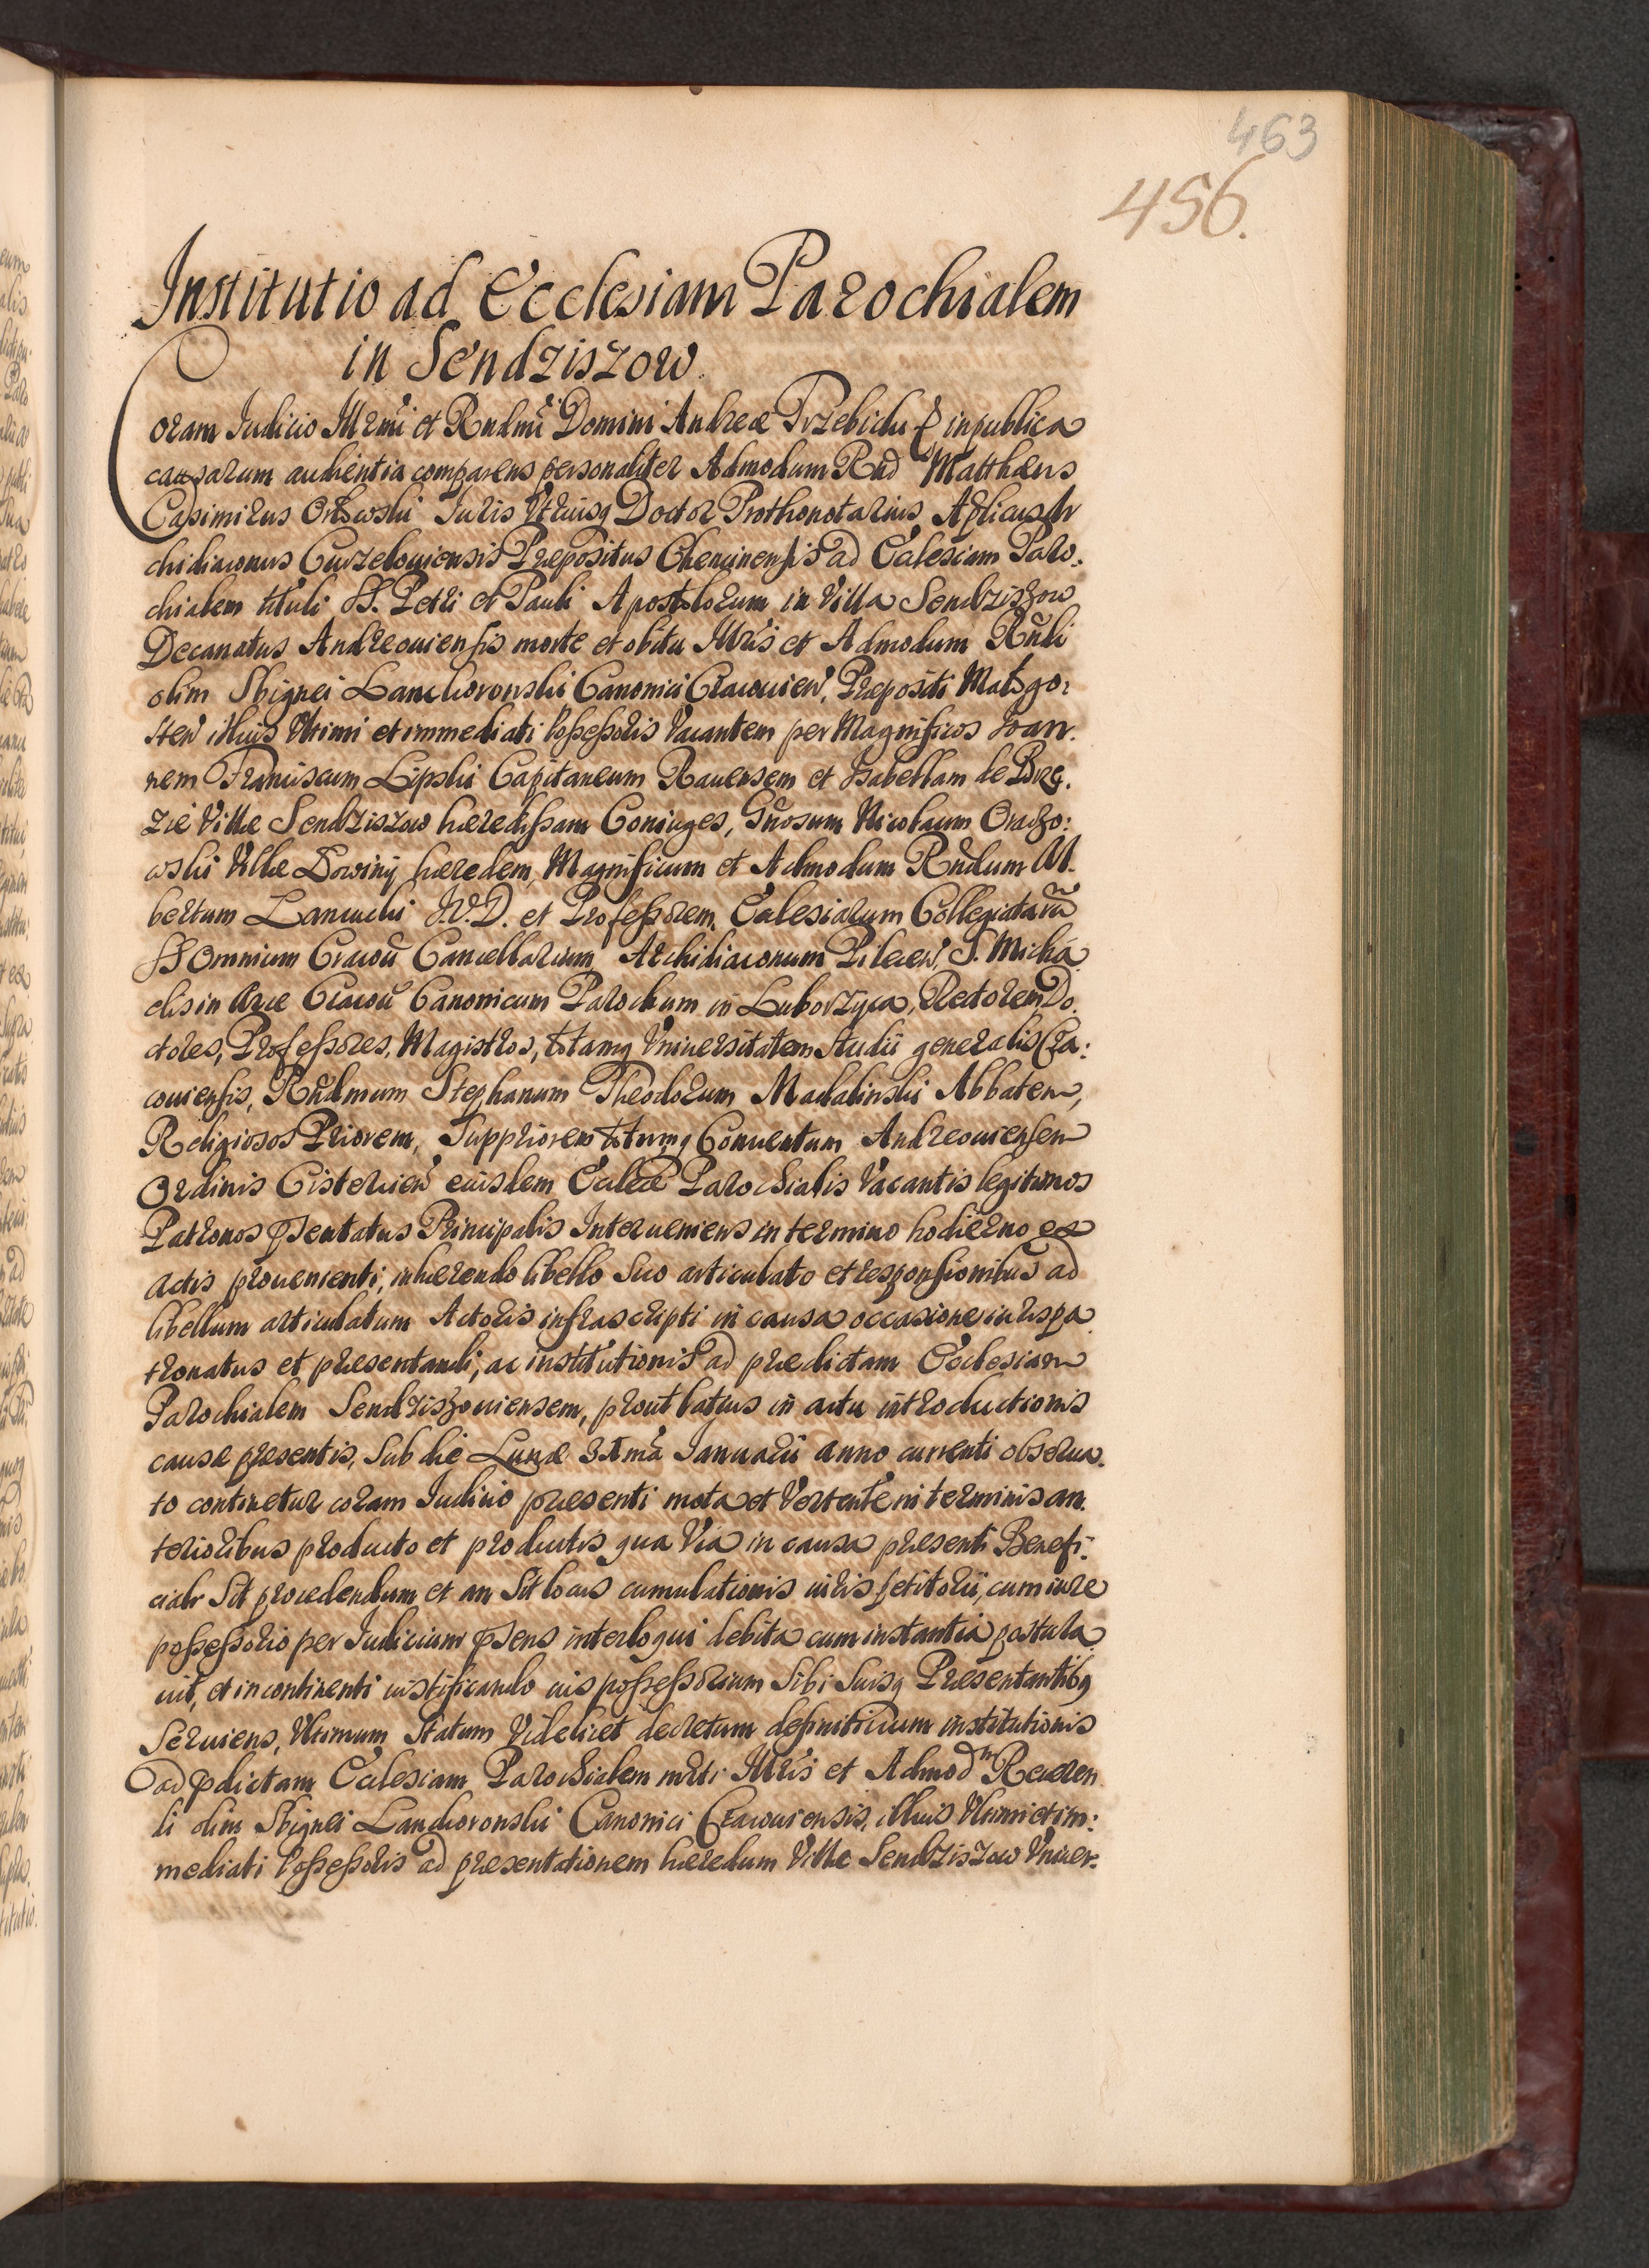 463
456.
Institutio ad Ecclesiam Parochialem
in Sendziszow.
Coram Iudicio Illrmi et Rndmi Domini Andreæ Trzebicki in publica
causarum audientia comparens personaliter Admodum Rnd Matthæus
Casimirus Orłowski Iuris Utriusq Doctor Prothonotarius Aplicus Ar
chidiaconus Curzelouiensis Præpositus Checinensis ad Eccl̃esiam Paro:
chialem tituli SS. Petri et Pauli Apostolorum in Villa Sendziszow
Decanatus Andreouiensis morte et obitu Illris et Admodum Rñdi
olim Sbignei Lanckoronski Canonici Cracouien̄, Præpositi Małogo:
sten̄ illius Vltimi et immediati Possessoris Vacantem per Magnificos Ioan:
nem Franciscum Lipski Capitaneum Rauensem et Isabellam de Brze:
zie Villæ Sendziszow hæredissam Coniuges, Gñosum Nicolaum Oraczo:
wski Villæ Łowiny hæredem, Magnificum et Admodum Rñdum Al:
bertum Lancucki I.V.D. et Professorem, Eccl̃esiarum Collegiatarū
SS Omnium Cracou̅ Cancellarium, Archidiaconum Pilcen̄, S. Micha
elis in Arce Cracou̅ Canonicum Parochum in Luborzyca, Rectorem Do:
ctores, Professores, Magistros, totamq Vniuersitatem studii generalis Cra:
couiensis, Rñdmum Stephanum Theodorum Madalinski Abbatem,
Religiosos Priorem, Suppriorem totumq Conuentum Andreouiensem
Ordinis Cistercien̄ eiusdem Eccl̃æ Parochialis Vacantis legitimos
Patronos pñsentatus Principalis Interueniens in termino hodierno ex
actis proueniente, inhærendo libello suo articulato et responsionibus ad
libellum articulatum Actoris infrascripti in causa occasione iuris pa
tronatus et præsentandi, ac institutionis ad prædictam Ecclesiam
Parochialem Sendziszouiensem, prout latius in actu introductionis
causæ præsentis, sub die Lunæ 31ma Ianuarii anno currenti obserua:
to continetur coram Iudicio præsenti mota et Vertente in terminis an:
terioribus producto et productis qua Via in causa præsenti Benefi:
ciali sit procedendum et an sit locus cumulationis iuris petitorii, cum iure
possessorio per Iudicium pñsens interloqui debita cum instantia postula
uit, et in continenti iustificando ius possessorium sibi suisq Præsentantibq
Seruiens, Vltimum statum Videlicet decretum definitiuum institutionis
ad pdictam Eccl̃esiam Parochialem Illris et Admodm Reueren
di olim Sbignei Lanckoronski Canonici Cracouiensis, illius Vltimi et im:
mediati Possessoris ad præsentationem hæredum Villæ Sendziszow Vniuer: